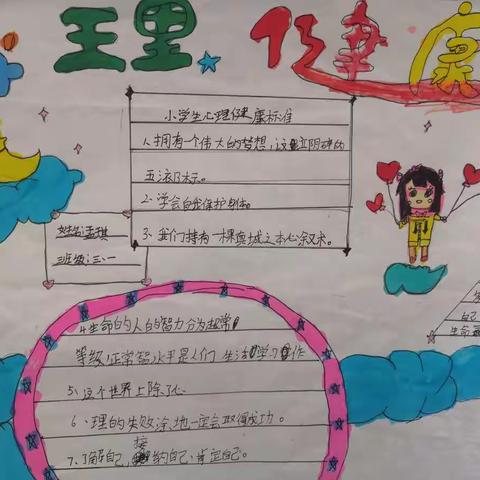 王里 健康
小学生心理健康标准
1、拥有一个伟大的梦想，这
五
标。
2、学会自我保护身体。
3、我们持有一棵真城之本心
姓名：孟琪
班级：三、一
4生命的人的智力分为超常
等级，正常智水平是人们生活学习作
5、这个世界上除了心
6、理的失败涂地一定会取得成功。
7、了解自己，接纳自己、肯定自己。
自己
生命